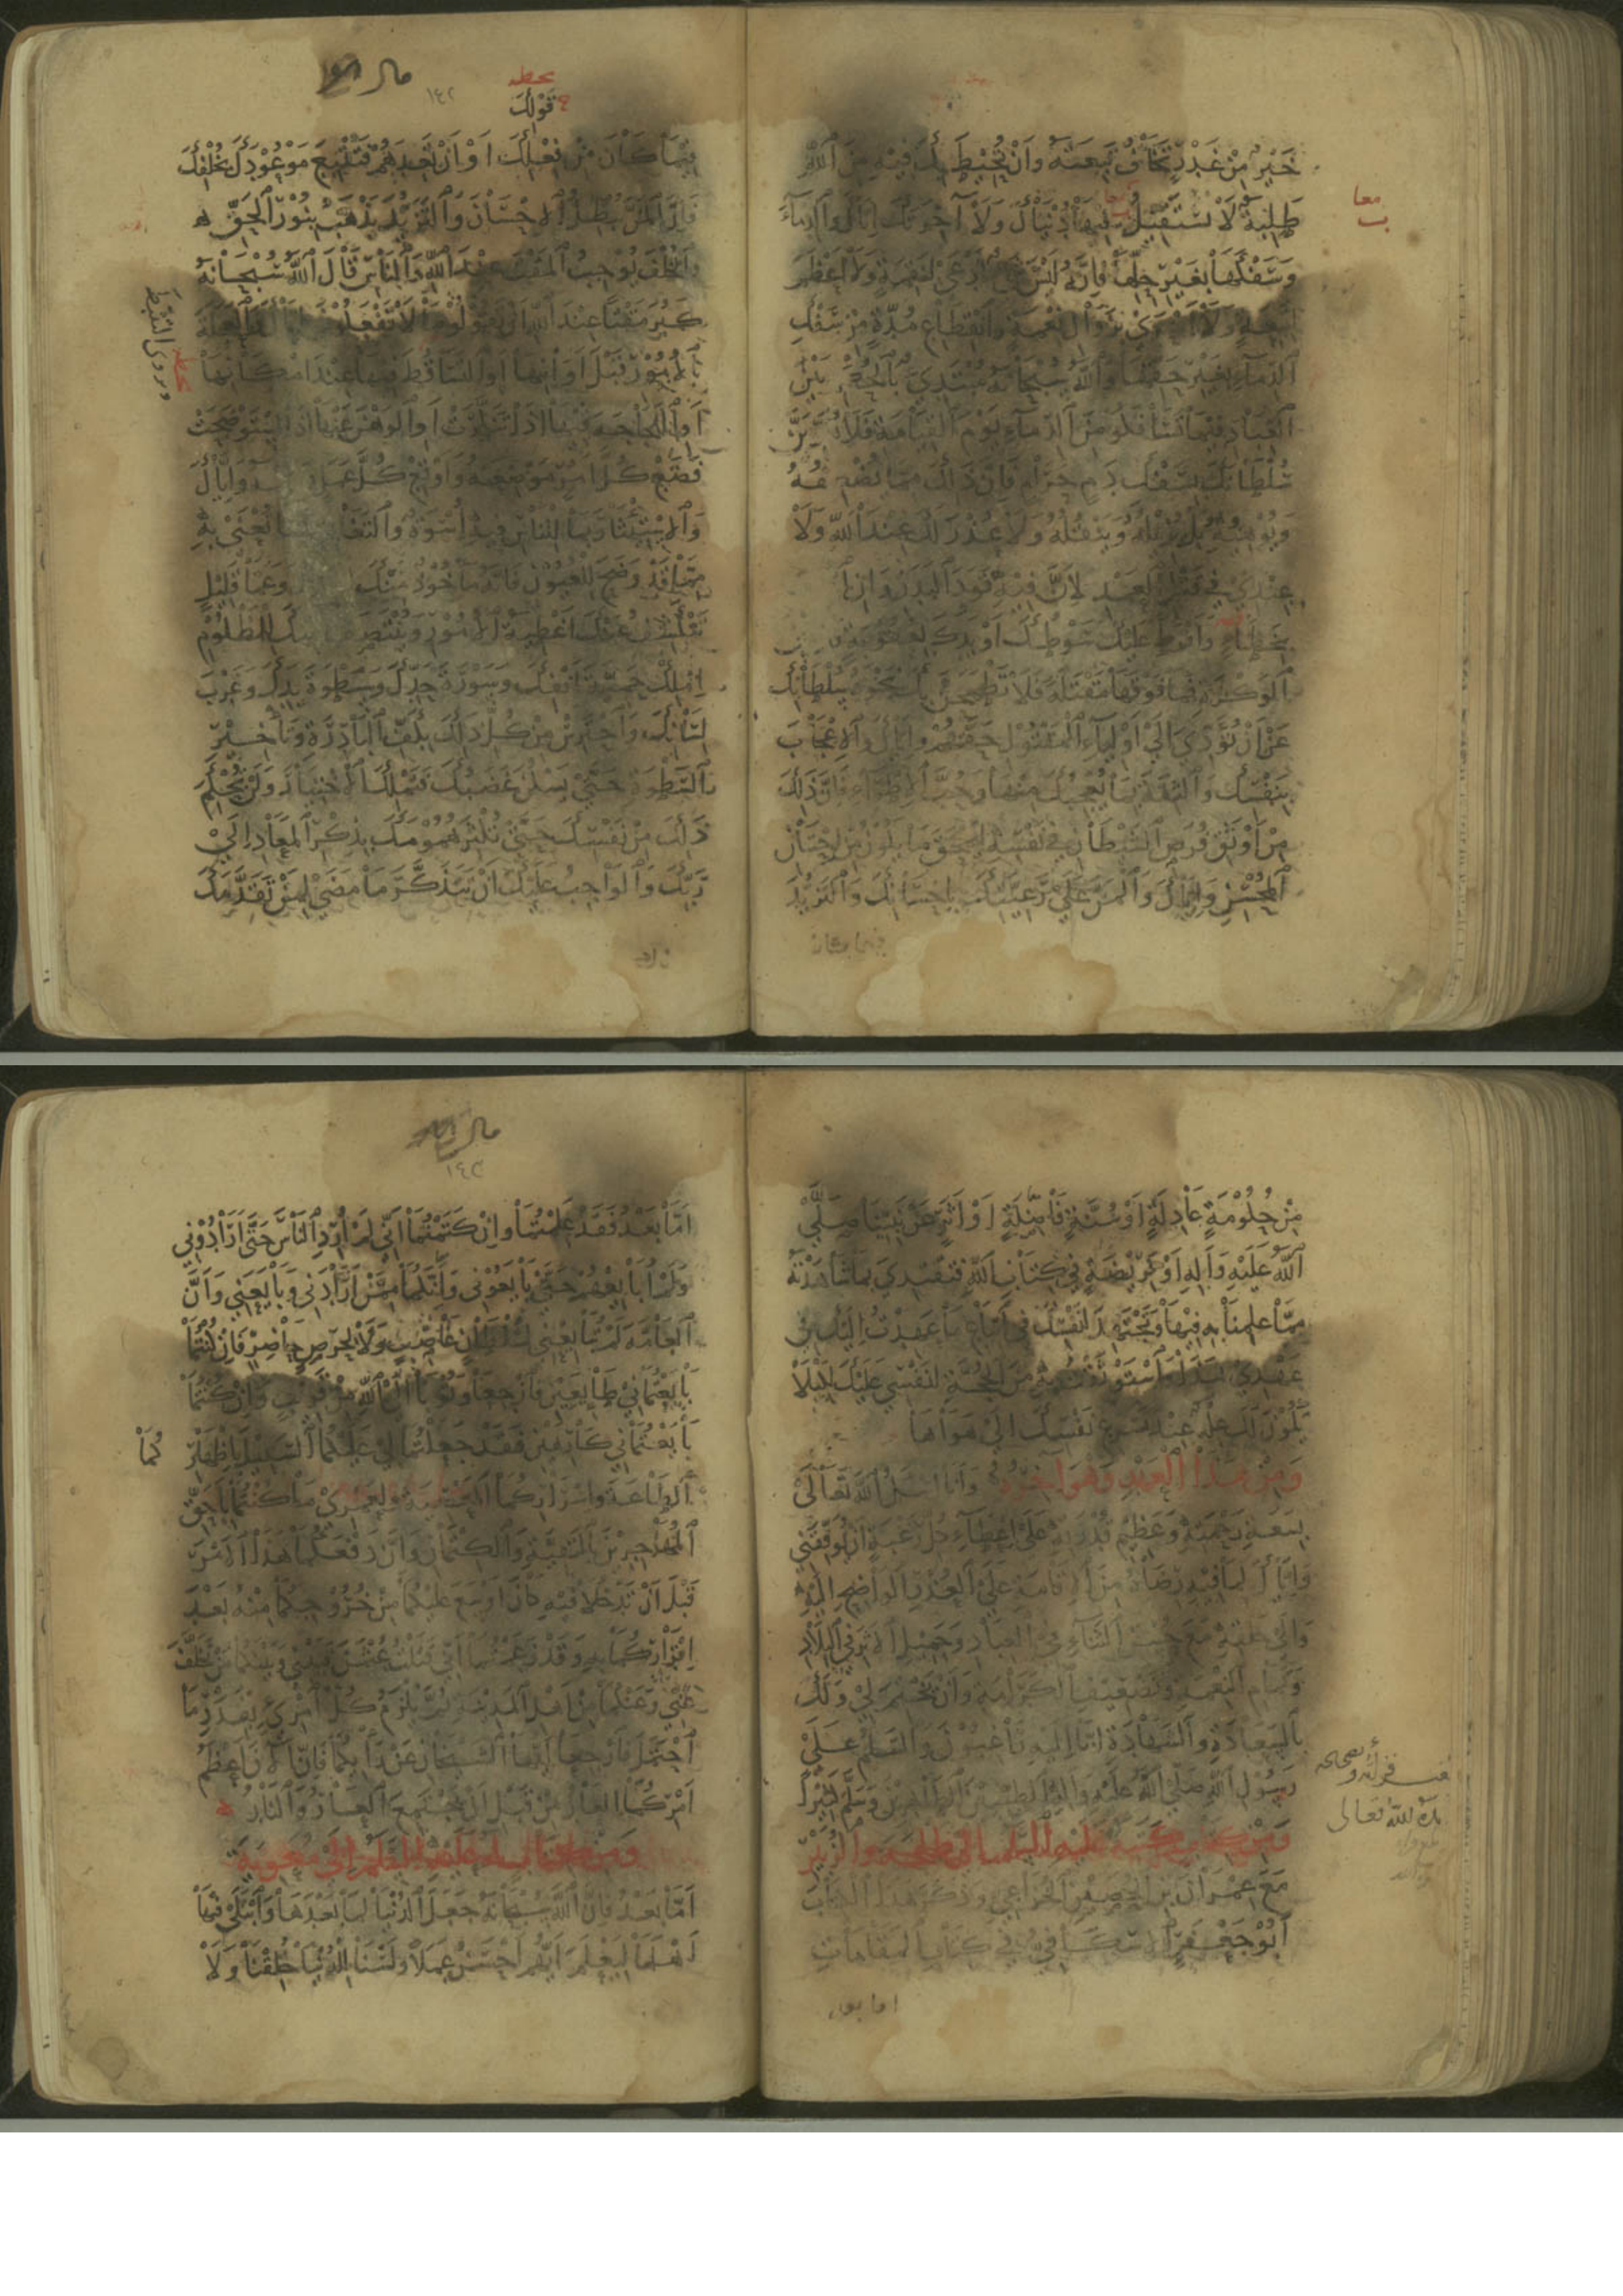 خَيْرٌ مِنْ غَدْرٍ تَخَافُ تَبِعَتَهُ وَاَنْ تُحِيْطَ بِكَ فِيْهِ مِنَ اللّٰهِ
طَلِبَةٌ لَا تَسْتَقِيْلُ فِيْهَا دُنْيَاكَ وَلَا آخِرَتَكَ اِيَّاكَ وَالدِّمَآءَ
وَسَفْكَهَا بِغَيْرِ حِلِّهَا فَاِنَّهُ لَيْسَ شَيْءٌ اَدْعَى لِنِقْمَةٍ وَلَا اَعْظَمَ
لِتَبِعَةٍ وَلَا اَحْرَى بِزَوَالِ نِعْمَةٍ وَانْقِطَاعِ مُدَّةٍ مِنْ سَفْكِ
الدِّمَآءِ بِغَيْرِ حَقِّهَا وَاللّٰهُ سُبْحَانَهُ مُبْتَدِئٌ بِالْحُكْمِ بَيْنَ
الْعِبَادِ فِيْمَا تَسَافَكُوا مِنَ الدِّمَآءِ يَوْمَ الْقِيَامَةِ فَلَا
سُلْطَانَكَ بِسَفْكِ دَمٍ حَرَامٍ فَاِنَّ ذَالِكَ مِمَّا يُضْعِفُهُ
وَيُوْهِنُهُ بَلْ يُزِيْلُهُ وَيَنْقُلُهُ وَلَا عُذْرَ لَكَ عِنْدَ اللّٰهِ وَلَا
عِنْدِيْ فِيْ قَتْلِ الْعَمْدِ لِاَنَّ فِيْهِ قَوَدَ الْبَدَنِ وَاِنِ
بِخَطَاءٍ وَاَفْرَطَ عَلَيْكَ سَوْطُكَ اَوْ يَدُكَ بِعُقُوْبَةٍ
الْوَكْزَةِ فَمَا فَوْقَهَا مَقْتَلَةً فَلَا تَطْمَحَنَّ بِكَ نَخْوَةُ سُلْطَانِكَ
عَنْ اَنْ تُؤَدِّيَ اِلَى اَوْلِيَآءِ الْمَقْتُوْلِ حَقَّهُمْ وَاِيَّاكَ وَالْاِعْجَابَ
بِنَفْسِكَ وَالثِّقَةَ بِمَا يُعْجِبُكَ مِنْهَا وَحُبَّ الْاِطْرَآءِ فَاِنَّ ذٰلِكَ
مِنْ اَوْثَقِ فُرَصِ الشَّيْطَانِ فِيْ نَفْسِهِ لِيَمْحَقَ مَا يَكُوْنُ مِنْ اِحْسَانِ
الْمُحْسِنِ وَاِيَّاكَ وَالْمَنَّ عَلَى رَعِيَّتِكَ بِاِحْسَانِكَ وَالتَّزَيُّدَ
معا
فيما كان
١٤٢
قَوْلِكَ
فِيْمَا كَانَ مِنْ فِعْلِكَ اَوْ اَنْ تَعِدَهُمْ فَتُتْبِعَ مَوْعُوْدَكَ بِخُلْفِكَ
فَاِنَّ الْمَنَّ يُبْطِلُ الْاِحْسَانَ وَالتَّزَيُّدَ يَذْهَبُ بِنُوْرِ الْحَقِّ
وَالْخُلْفَ يُوْجِبُ الْمَقْتَ عِنْدَ اللّٰهِ وَالنَّاسِ قَالَ اللّٰهُ سُبْحَانَهُ
كَبُرَ مَقْتًا عِنْدَ اللّٰهِ اَنْ تَقُوْلُوْا مَا لَا تَفْعَلُوْنَ وَالْعَجَلَةَ
بِالْاُمُوْرِ قَبْلَ اَوَانِهَا اَوِ التَّسَاقُطَ فِيْهَا عِنْدَ اِمْكَانِهَا
اَوِ اللَّجَاجَةَ فِيْهَا اِذَا تَنَكَّرَتْ اَوِ الْوَهْنَ عَنْهَا اِذَا اسْتَوْضَحَتْ
فَضَعْ كُلَّ اَمْرٍ مَوْضِعَهُ وَاَوْقِعْ كُلَّ عَمَلٍ وَاِيَّاكَ
وَالْاِسْتِيْثَارَ بِمَا النَّاسُ فِيْهِ اُسْوَةٌ وَالتَّغَابِيَ عَمَّا تُعْنَى بِهِ
مِمَّا قَدْ وَضَحَ لِلْعُيُوْنِ فَاِنَّهُ مَأْخُوْذٌ مِنْكَ وَعَمَّا قَلِيْلٍ
تَنْكَشِفُ عَنْكَ اَغْطِيَةُ الْاُمُوْرِ وَيُنْتَصَفُ مِنْكَ لِلْمَظْلُوْمِ
اِمْلِكْ حَمِيَّةَ اَنْفِكَ وَسَوْرَةَ حَدِّكَ وَسَطْوَةَ يَدِكَ وَغَرْبَ
لِسَانِكَ وَاحْتَرِسْ مِنْ كُلِّ ذَالِكَ بِكَفِّ الْبَادِرَةِ وَتَأْخِيْرِ
السَّطْوَةِ حَتّٰى يَسْكُنَ غَضَبُكَ فَتَمْلِكَ الْاِخْتِيَارَ وَلَنْ تُحْكِمَ
ذَالِكَ مِنْ نَفْسِكَ حَتّٰى تُكْثِرَ هُمُوْمَكَ بِذِكْرِ الْمَعَادِ اِلَى
رَبِّكَ وَالْوَاجِبُ عَلَيْكَ اَنْ تَتَذَكَّرَ مَا مَضَى لِمَنْ تَقَدَّمَكَ
ويروى التثبط
مِنْ حُكُوْمَةٍ عَادِلَةٍ اَوْ سُنَّةٍ فَاضِلَةٍ اَوْ اَثَرٍ عَنْ نَبِيِّنَا صَلَّى
اللّٰهُ عَلَيْهِ وَاٰلِهِ اَوْ فَرِيْضَةٍ فِيْ كِتَابِ اللّٰهِ فَتَقْتَدِيَ بِمَا شَاهَدْتَهُ
مِمَّا عَمِلْنَا بِهِ فِيْهَا وَتَجْتَهِدَ لِنَفْسِكَ فِي اتِّبَاعِ مَا عَهِدْتُ اِلَيْكَ فِيْ
عَهْدِيْ هٰذَا وَاسْتَوْثَقْتُ بِهِ مِنَ الْحُجَّةِ لِنَفْسِيْ عَلَيْكَ لِكَيْلَا
يَكُوْنَ لَكَ عِلَّةٌ عِنْدَ تَسَرُّعِ نَفْسِكَ اِلَى هَوَاهَا
وَمِنْ هٰذَا الْعَهْدِ وَهُوَ اٰخِرُهُ وَاَنَا اَسْئَلُ اللّٰهَ تَعَالَى
بِسَعَةِ رَحْمَتِهِ وَعَظِيْمِ قُدْرَتِهِ عَلَى اِعْطَآءِ كُلِّ رَغْبَةٍ اَنْ يُوَفِّقَنِيْ
وَاِيَّاكَ لِمَا فِيْهِ رِضَاهُ مِنَ الْاِقَامَةِ عَلَى الْعُذْرِ الْوَاضِحِ اِلَيْهِ
وَاِلَى خَلْقِهِ مَعَ حُسْنِ الثَّنَآءِ فِي الْعِبَادِ وَجَمِيْلِ الْاَثَرِ فِي الْبِلَادِ
وَتَمَامِ النِّعْمَةِ وَتَضْعِيْفِ الْكَرَامَةِ وَاَنْ يَخْتِمَ لِيْ وَلَكَ
بِالسَّعَادَةِ وَالشَّهَادَةِ اِنَّا اِلَيْهِ رَاغِبُوْنَ وَالسَّلَامُ عَلَى
رَسُوْلِ اللّٰهِ صَلَّى اللّٰهُ عَلَيْهِ وَاٰلِهِ الطَّيِّبِيْنَ الطَّاهِرِيْنَ وَسَلَّمَ كَثِيْرًا
وَمِنْ كِتَابٍ كَتَبَهُ عَلَيْهِ السَّلَامُ اِلَى طَلْحَةَ وَالزُّبَيْرِ
مَعَ عِمْرَانَ بْنِ الْحُصَيْنِ الْخُزَاعِيِّ وَذَكَرَ هٰذَا الْكِتَابَ
اَبُوْ جَعْفَرٍ الْاِسْكَافِيُّ فِيْ كِتَابِ الْمَقَامَاتِ
اما بعد
١٤٣
اَمَّا بَعْدُ فَقَدْ عَلِمْتُمَا وَاِنْ كَتَمْتُمَا اَنِّيْ لَمْ اُرِدِ النَّاسَ حَتّٰى اَرَادُوْنِيْ
وَلَمْ اُبَايِعْهُمْ حَتّٰى بَايَعُوْنِيْ وَاِنَّكُمَا مِمَّنْ اَرَادَنِيْ وَبَايَعَنِيْ وَاَنَّ
الْعَامَّةَ لَمْ تُبَايِعْنِيْ لِسُلْطَانٍ غَاصِبٍ وَلَا لِحَرْصٍ حَاضِرٍ فَاِنْ كُنْتُمَا
بَايَعْتُمَانِيْ طَايِعَيْنِ فَارْجِعَا وَتُوْبَا اِلَى اللّٰهِ مِنْ قَرِيْبٍ وَاِنْ كُنْتُمَا
بَايَعْتُمَانِيْ كَارِهَيْنِ فَقَدْ جَعَلْتُمَا لِيْ عَلَيْكُمَا السَّبِيْلَ بِاِظْهَارِ
كُمَا
الطَّاعَةَ وَاِسْرَارِكُمَا الْمَعْصِيَةَ وَلَعَمْرِيْ مَا كُنْتُمَا بِاَحَقِّ
الْمُهَاجِرِيْنَ بِالتَّقِيَّةِ وَالْكِتْمَانِ وَاِنَّ دَفْعَكُمَا هٰذَا الْاَمْرَ
قَبْلَ اَنْ تَدْخُلَا فِيْهِ كَانَ اَوْسَعَ عَلَيْكُمَا مِنْ خُرُوْجِكُمَا مِنْهُ بَعْدَ
اِقْرَارِكُمَا بِهِ وَقَدْ زَعَمْتُمَا اَنِّيْ قَتَلْتُ عُثْمٰنَ فَبَيْنِيْ وَبَيْنَكُمَا مَنْ تَخَلَّفَ
عَنِّيْ وَعَنْكُمَا مِنْ اَهْلِ الْمَدِيْنَةِ ثُمَّ يُلْزَمُ كُلُّ امْرِئٍ بِقَدْرِ مَا
احْتَمَلَ فَارْجِعَا اَيُّهَا الشَّيْخَانِ عَنْ رَأْيِكُمَا فَاِنَّ الْاٰنَ اَعْظَمَ
اَمْرِكُمَا الْعَارُ مِنْ قَبْلِ اَنْ يَجْتَمِعَ الْعَارُ وَالنَّارُ
وَمِنْ كِتَابٍ لَهُ عَلَيْهِ السَّلَامُ اِلَى مُعٰوِيَةَ
اَمَّا بَعْدُ فَاِنَّ اللّٰهَ سُبْحَانَهُ جَعَلَ الدُّنْيَا لِمَا بَعْدَهَا وَابْتَلَى فِيْهَا
اَهْلَهَا لِيَعْلَمَ اَيُّهُمْ اَحْسَنُ عَمَلًا وَلَسْنَا لِلدُّنْيَا خُلِقْنَا وَلَا